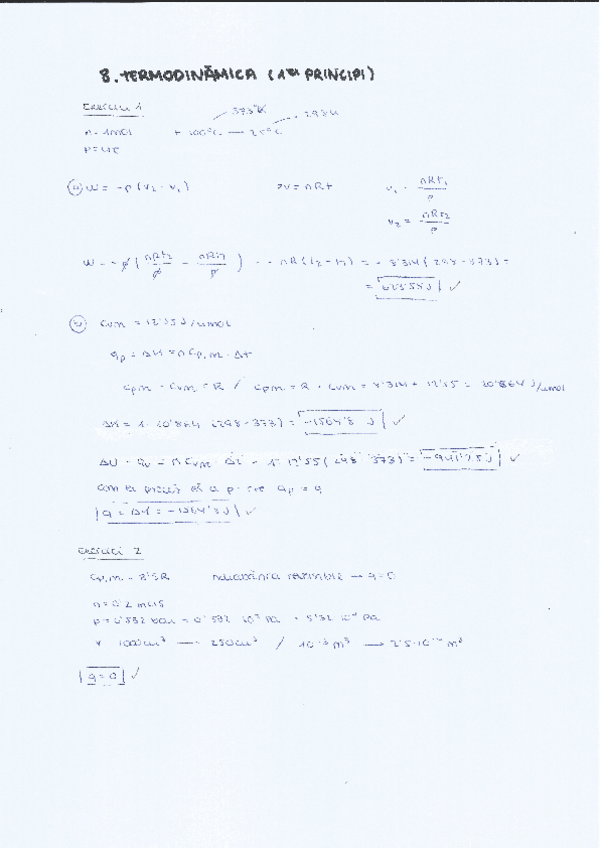 8. TERMODINÀMICA (1er PRINCIPI)
EXERCICI 1
373K 298K
n = 1mol + 100ºC — 25ºC
p = cte
a) W = -p (V2 - V1) PV = nRt V1 = nRt1/p
V2 = nRt2/p
W = -p (nRt2/p - nRt1/p) = -nR (t2 - t1) = - 8'314 (298 - 373) =
= 623'55J ✓
b) Cvm = 12'55 J/Kmol
qp = ΔH = n Cp,m · Δt
Cpm - Cvm = R / Cpm = R + Cvm = 8'314 + 12'55 = 20'864 J/Kmol
ΔH = 1 · 20'864 (298 - 373) = -1564'8 J ✓
ΔU = qv = n Cvm · Δt = 1 · 12'55 (298 - 373) = -941'25J ✓
com el procés és a p cte qp = q
q = ΔH = -1564'8J ✓
EXERCICI 2
Cp,m = 3'5R adiabàtic reversible → q = 0
n = 0'2 mols
V 1000cm³ — 250cm³ / 10⁻³ m³ → 2'5·10⁻⁴ m³
q = 0 ✓